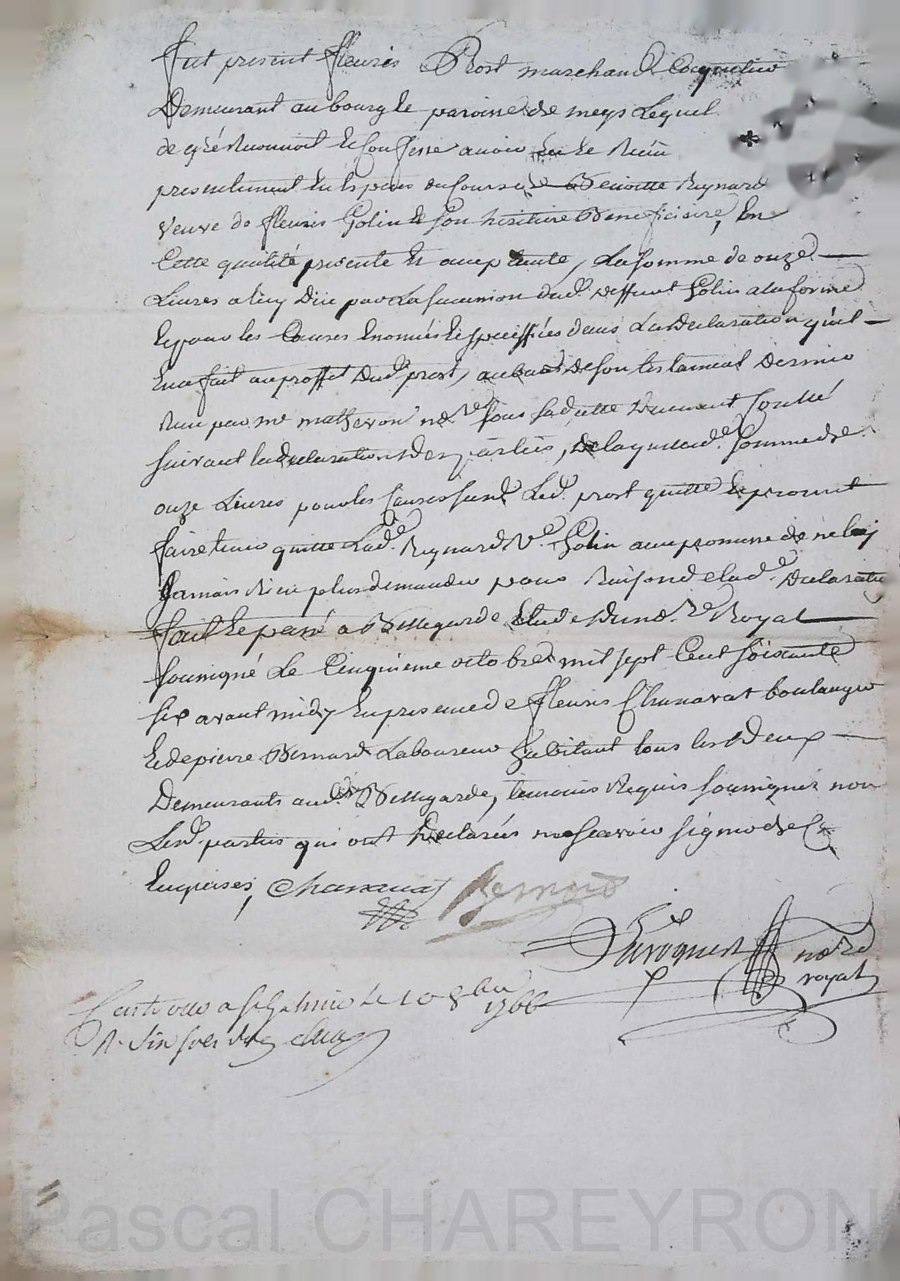 fut present fleuris Prost marchand Coquetier
Demeurant au bourg & paroisse de meys Lequel
de gré Reconnoit & Confesse avoir Eu & Reçu
presentement En Especes du Cours de Benoitte Reynard
veuve de fleuris Golin & son heritiere Beneficiaire, En
Cette qualité presente Et acceptante, La somme de onze
Livres a luy Due par La succession dud. deffunt Golin a la forme
& pour les Causes Enoncées & specifiées dans La Declaration qu'il
En a fait au proffit Dud. prost, au bas De son testament Dernier
Reçu par me matheron nre sous sa datte Duement
suivant la declaration des parties, De laquelle de. somme de
onze Livres pour les Causes susd. Led. prost quitte & promet
faire tenir quitte Lad. Reynard ve. Golin avec promesse de ne luy
Jamais Rien plus demander pour Raison de lad. Declaration
fait & passé a Bellegarde Etude du nore Royal
soussigné Le Cinquieme octobre mil sept Cent soixante
six avant midy En presence de fleuris Chanavat boulanger
& de pierre Bernard Laboureur habitant tous les Deux
Demeurants aud. Bellegarde, temoins Requis soussignés non
Lesd. parties qui ont declarées ne scavoir signer de Ce
Enquises, Chanavat Bernard
nore
royal
Controllé a St Galmier le 10 8bre
1766
R. sols
Pascal CHAREYRON